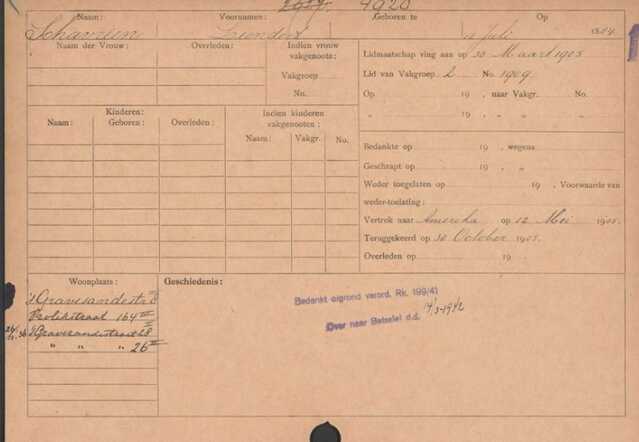 4920
Naam: Voornamen: Geboren te Op
Schavrien Leendert 1 Juli
Naam der Vrouw: Overleden: Indien vrouw vakgenoote: Lidmaatschap ving aan op 30 Maart 1905
Vakgroep Lid van Vakgroep 2 No. 1909
No. Op 19 , naar Vakgr. No.
„ 19 „ „ „
Kinderen: Indien kinderen vakgenooten:
Naam: Geboren: Overleden: Naam: Vakgr. No.
Bedankte op 19 , wegens
Geschrapt op 19 „ „
Weder toegelaten op 19 , Voorwaarde van
weder-toelating:
Vertrok naar Amerika op 12 Mei 1905.
Teruggekeerd op 30 October 1905.
Overleden op 19
Woonplaats: Geschiedenis:
's Gravesandestr
Vrolikstraat 164 III
's Gravesandestraat 28
„ „ „ 26 III
Bedankt oigrond verord. Rk. 199/41
Over naar Betsalel d.d. 14/3-1942